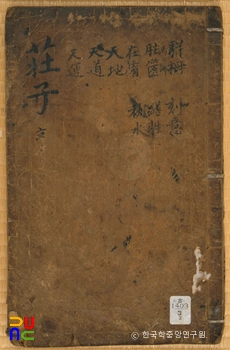 騈拇
胠篋
在宥
天地
天道
天運
刻意
繕性
秋水
莊子
1403
© 한국학중앙연구원